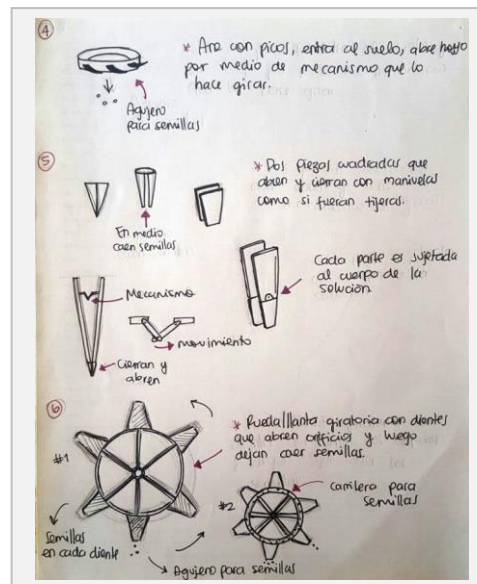 4
* Aro con picos, entra al suelo, abre hoyo
por medio de mecanismo que lo
hace girar.
Agujero
para semillas
5
* Dos piezas cuadradas que
abren y cierran con manivelas
como si fueran tijeras.
En medio
caen semillas
Cada parte es sujetada
al cuerpo de la
solución.
Mecanismo
movimiento
Cierran y
abren
6
* Rueda/llanta giratoria con dientes
que abren orificios y luego
dejan caer semillas.
#1
Carrilera para
semillas
#2
Semillas
en cada diente
Agujero para semillas